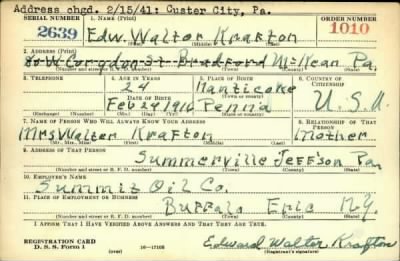 Address chgd. 2/15/41: Custer City, Pa.
SERIAL NUMBER 1. NAME (Print) ORDER NUMBER
2639 Edw. Walter Krafton 1010
(First) (Middle) (Last)
2. ADDRESS (Print)
W Corydon St Bradford McKean Pa.
(Number and street or R. F. D. number) (Town) (County) (State)
3. TELEPHONE 4. AGE IN YEARS 5. PLACE OF BIRTH 6. COUNTRY OF CITIZENSHIP
24 Nanticoke
DATE OF BIRTH (Town or county)
Feb 24 1916 Penna U.S.A
(Mo.) (Day) (Yr.) (State or country)
7. NAME OF PERSON WHO WILL ALWAYS KNOW YOUR ADDRESS 8. RELATIONSHIP OF THAT PERSON
Mrs Walter Krafton Mother
(Mr., Mrs., Miss) (First) (Middle) (Last)
9. ADDRESS OF THAT PERSON
Summerville Jeff'son Pa.
(Number and street or R. F. D. number) (Town) (County) (State)
10. EMPLOYER'S NAME
Summit Oil Co.
11. PLACE OF EMPLOYMENT OR BUSINESS
Buffalo Erie N.Y.
(Number and street or R. F. D. number) (Town) (County) (State)
I AFFIRM THAT I HAVE VERIFIED ABOVE ANSWERS AND THAT THEY ARE TRUE.
REGISTRATION CARD
D. S. S. Form 1 (over) 16—17105 Edward Walter Krafton
(Registrant's signature)